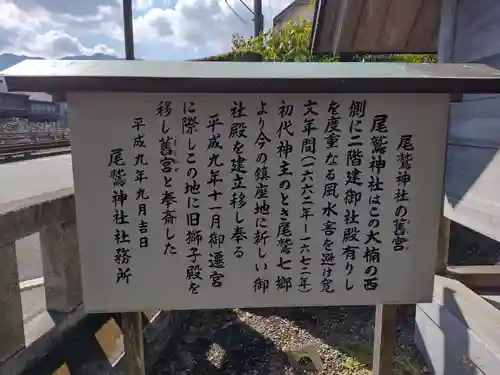 尾鷲神社の舊宮
尾鷲神社はこの大楠の西
側に二階建御社殿有りし
を度重なる風水害を避け寛
文年間(一六六二年ー一六七二年)
初代神主のとき尾鷲七郷
より今の鎮座地に新しい御
社殿を建立移し奉る
平成九年十一月御遷宮
に際しこの地に旧獅子殿を
移し舊宮と奉斎した
平成九年九月吉日
尾鷲神社社務所